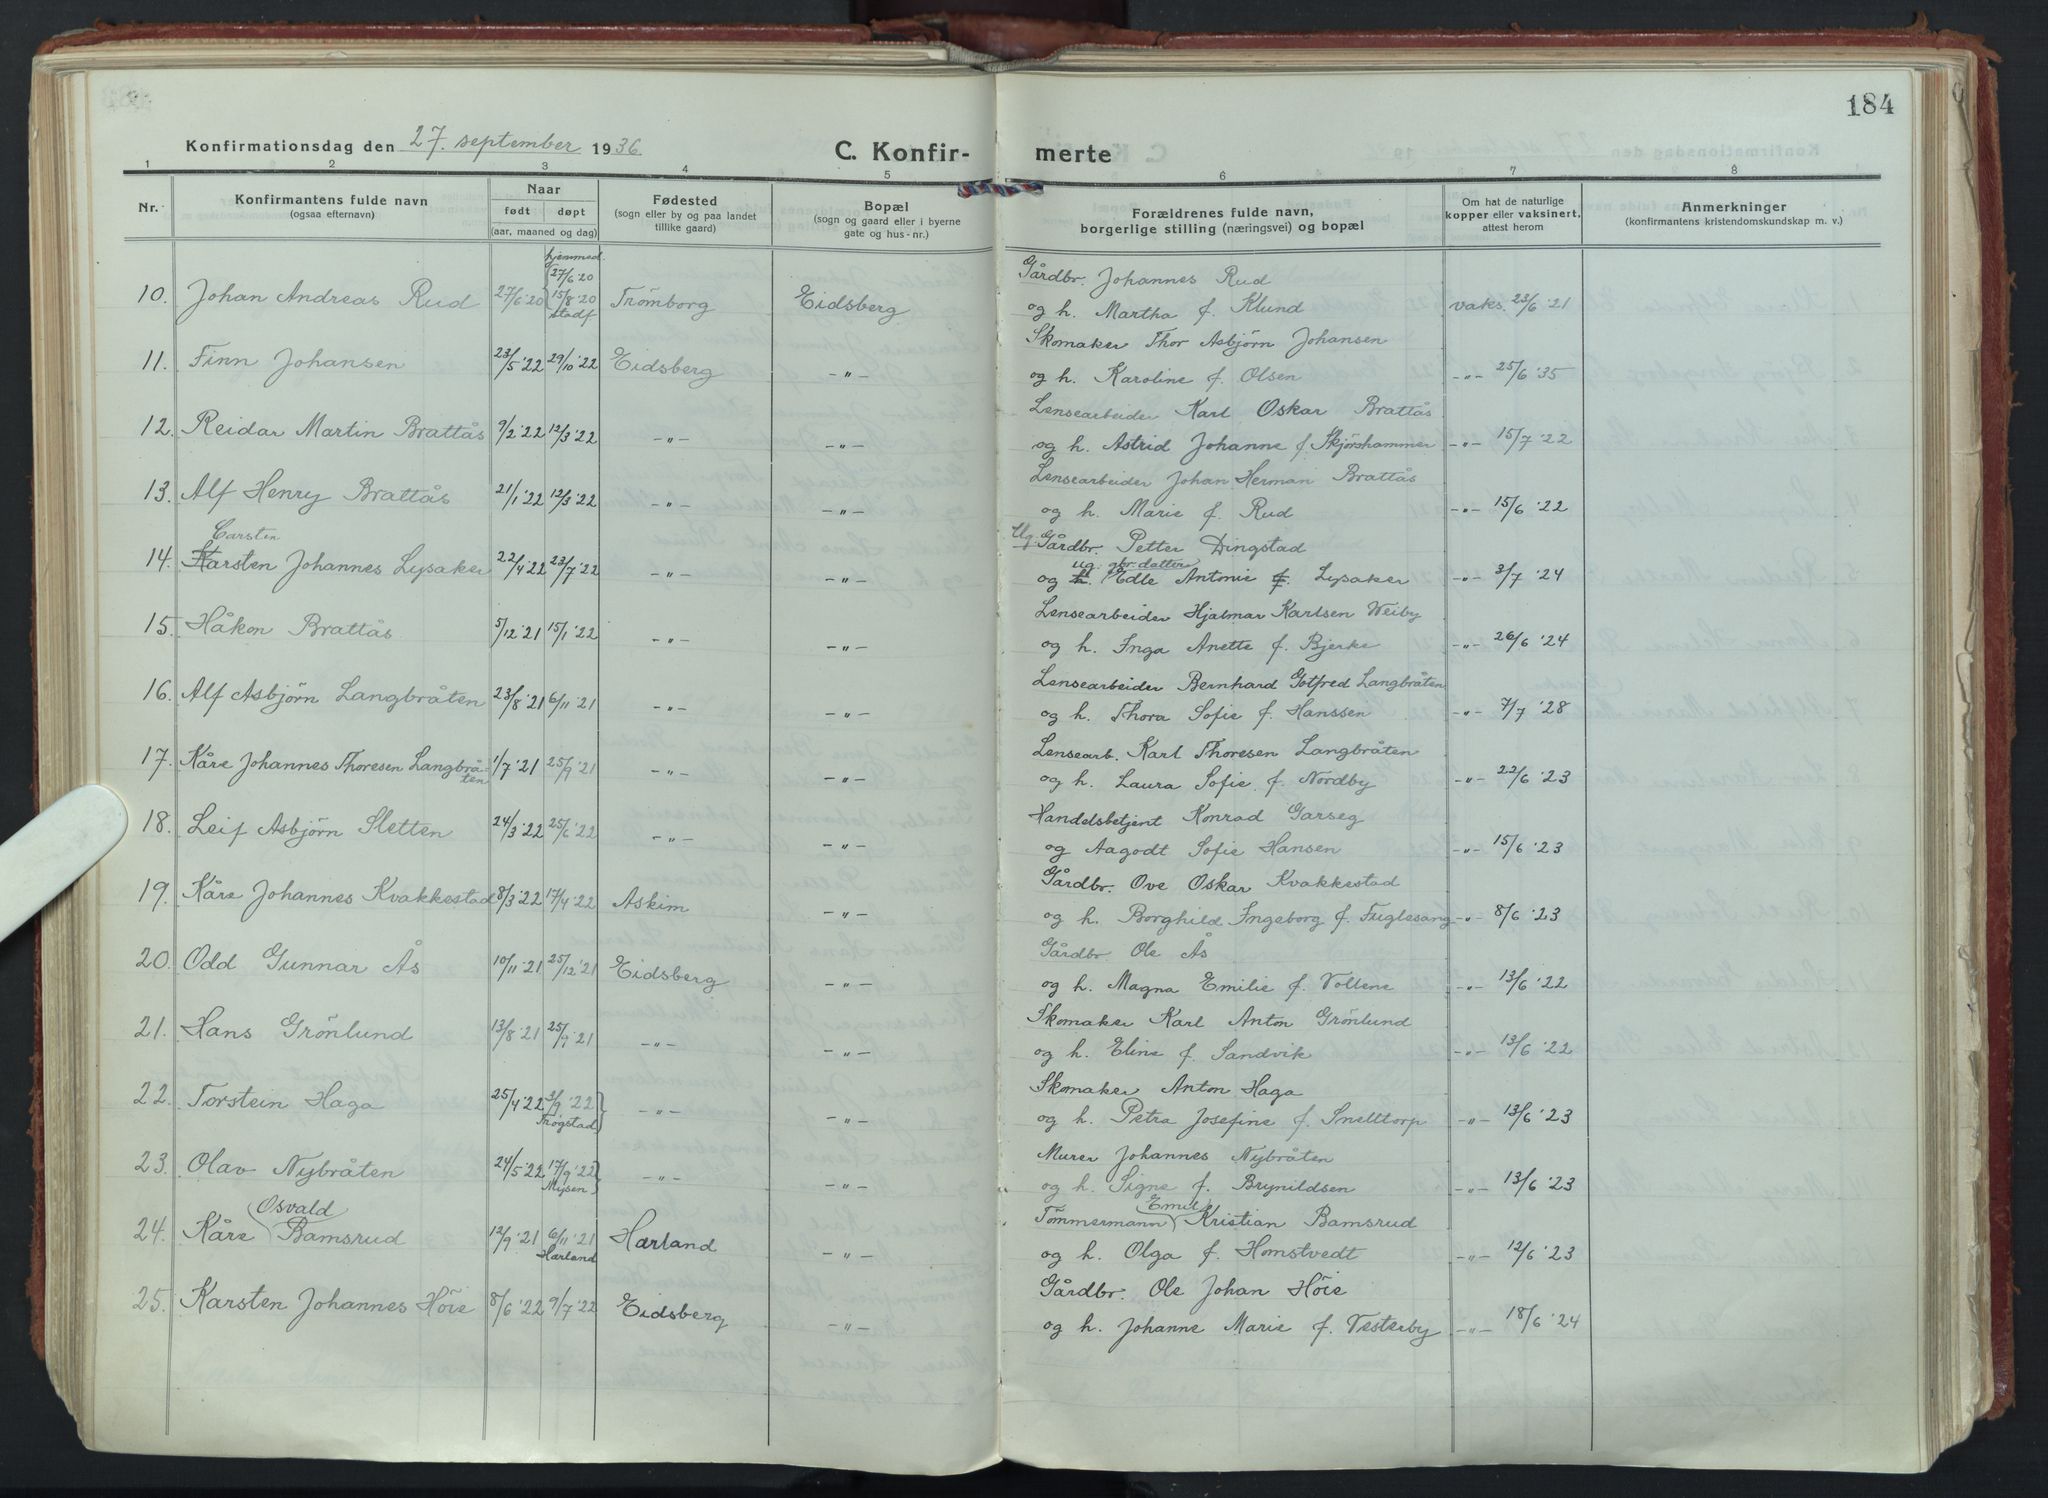 184
Konfirmationsdag den 27. september 1936
C. Konfir- merte
1 2 3 4 5 6 7 8
Nr.
Konfirmantens fulde navn
(ogsaa efternavn)
Naar
født døpt
(aar, maaned og dag)
Fødested
(sogn eller by og paa landet
tillike gaard)
Bopæl
(sogn og gaard eller i byerne
gate og hus-nr.)
Forældrenes fulde navn,
borgerlige stilling (næringsvei) og bopæl
Om hat de naturlige
kopper eller vaksinert,
attest herom
Anmerkninger
(konfirmantens kristendomskundskap m. v.)
hjemmed.
27/6 '20
10. Johan Andreas Rud 27/6 '20 15/8 '20 Trömborg Eidsberg
stadf
Gårdbr. Johannes Rud
og h. Martha f. Klund vaks. 23/6 '21
11. Finn Johansen 23/5 '22 29/10 '22 Eidsberg -"-
Skomaker Thor Asbjörn Johansen
og h. Karoline f. Olsen -"- 25/6 '35
12. Reidar Martin Brattås 9/2 '22 12/3 '22 -"- -"-
Lensearbeider Karl Oskar Brattås
og h. Astrid Johanne f. Skjörshammer -"- 15/7 '22
13. Alf Henry Brattås 21/1 '22 12/3 '22 -"- -"-
Lensearbeider Johan Herman Brattås
og h. Marie f. Rud -"- 15/6 '22
Carsten
14. Karsten Johannes Lysaker 22/4 '22 23/7 '22 -"- -"-
Ug. Gårdbr. Petter Dingstad
ug. gbr.datter
og h. Edle Antonie f. Lysaker -"- 3/7 '24
15. Håkon Brattås 5/12 '21 15/1 '22 -"- -"-
Lensearbeider Hjalmar Karlsen Weiby
og h. Inga Anette f. Bjerke -"- 26/6 '24
16. Alf Asbjörn Langbråten 23/8 '21 6/11 '21 -"- -"-
Lensearbeider Bernhard Gotfred Langbråten
og h. Thora Sofie f. Hanssen -"- 7/7 '28
17. Kåre Johannes Thoresen Langbrå- 1/7 '21 25/9 '21 -"- -"-
ten
Lensearb. Karl Thoresen Langbråten
og h. Laura Sofie f. Nordby -"- 22/6 '23
18. Leif Asbjörn Sletten 24/3 '22 25/6 '22 -"- -"-
Handelsbetjent Konrad Garseg
og Aagodt Sofie Hansen -"- 15/6 '23
19. Kåre Johannes Kvakkestad 8/3 '22 17/4 '22 Askim -"-
Gårdbr. Ove Oskar Kvakkestad
og h. Borghild Ingeborg f. Fuglesang -"- 8/6 '23
20. Odd Gunnar Ås 10/11 '21 25/12 '21 Eidsberg -"-
Gårdbr Ole Ås
og h. Magna Emilie f. Vollene -"- 13/6 '22
21. Hans Grönlund 13/8 '21 25/9 '21 -"- -"-
Skomaker Karl Anton Grönlund
og h. Eline f. Sandvik -"- 13/6 '22
22. Torstein Haga 25/4 '22 3/9 '22 -"- -"-
Trøgstad
Skomaker Anton Haga
og h. Petra Josefine f. Snelltorp -"- 13/6 '23
23. Olav Nybråten 24/5 '22 17/9 '22 -"- -"-
Mysen
Murer Johannes Nybråten
og h. Signe f. Brynildsen -"- 13/6 '23
Osvald
24. Kåre Bamsrud 12/9 '21 6/11 '21 Hærland -"-
Hærland
Emil
Tömmermann Kristian Bamsrud
og h. Olga f. Homstvedt -"- 12/6 '23
25. Karsten Johannes Höie 8/6 '22 9/7 '22 Eidsberg -"-
Gårdbr. Ole Johan Höie
og h. Johanne Marie f. Testerby -"- 18/6 '24